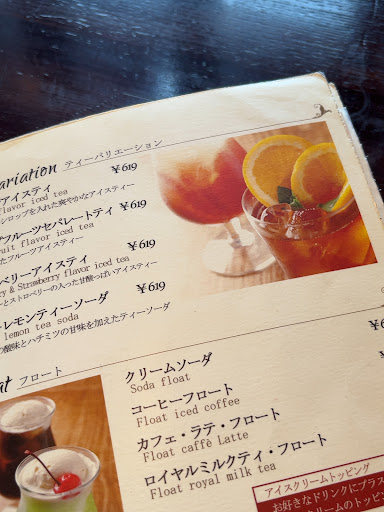 ariation ティーバリエーション
アイスティ ¥619
flavor iced tea
シロップを入れた爽やかなアイスティー
フルーツセパレートティ ¥619
uit flavor iced tea
たフルーツアイスティー
ベリーアイスティ ¥619
y & Strawberry flavor iced tea
とストロベリーの入った甘酸っぱいアイスティー
レモンティーソーダ ¥619
lemon tea soda
の酸味とハチミツの甘味を加えたティーソーダ
at フロート
クリームソーダ
Soda float
コーヒーフロート
Float iced coffee
カフェ・ラテ・フロート
Float caffè Latte
ロイヤルミルクティ・フロート
Float royal milk tea
アイスクリームトッピング
お好きなドリンクにプラス